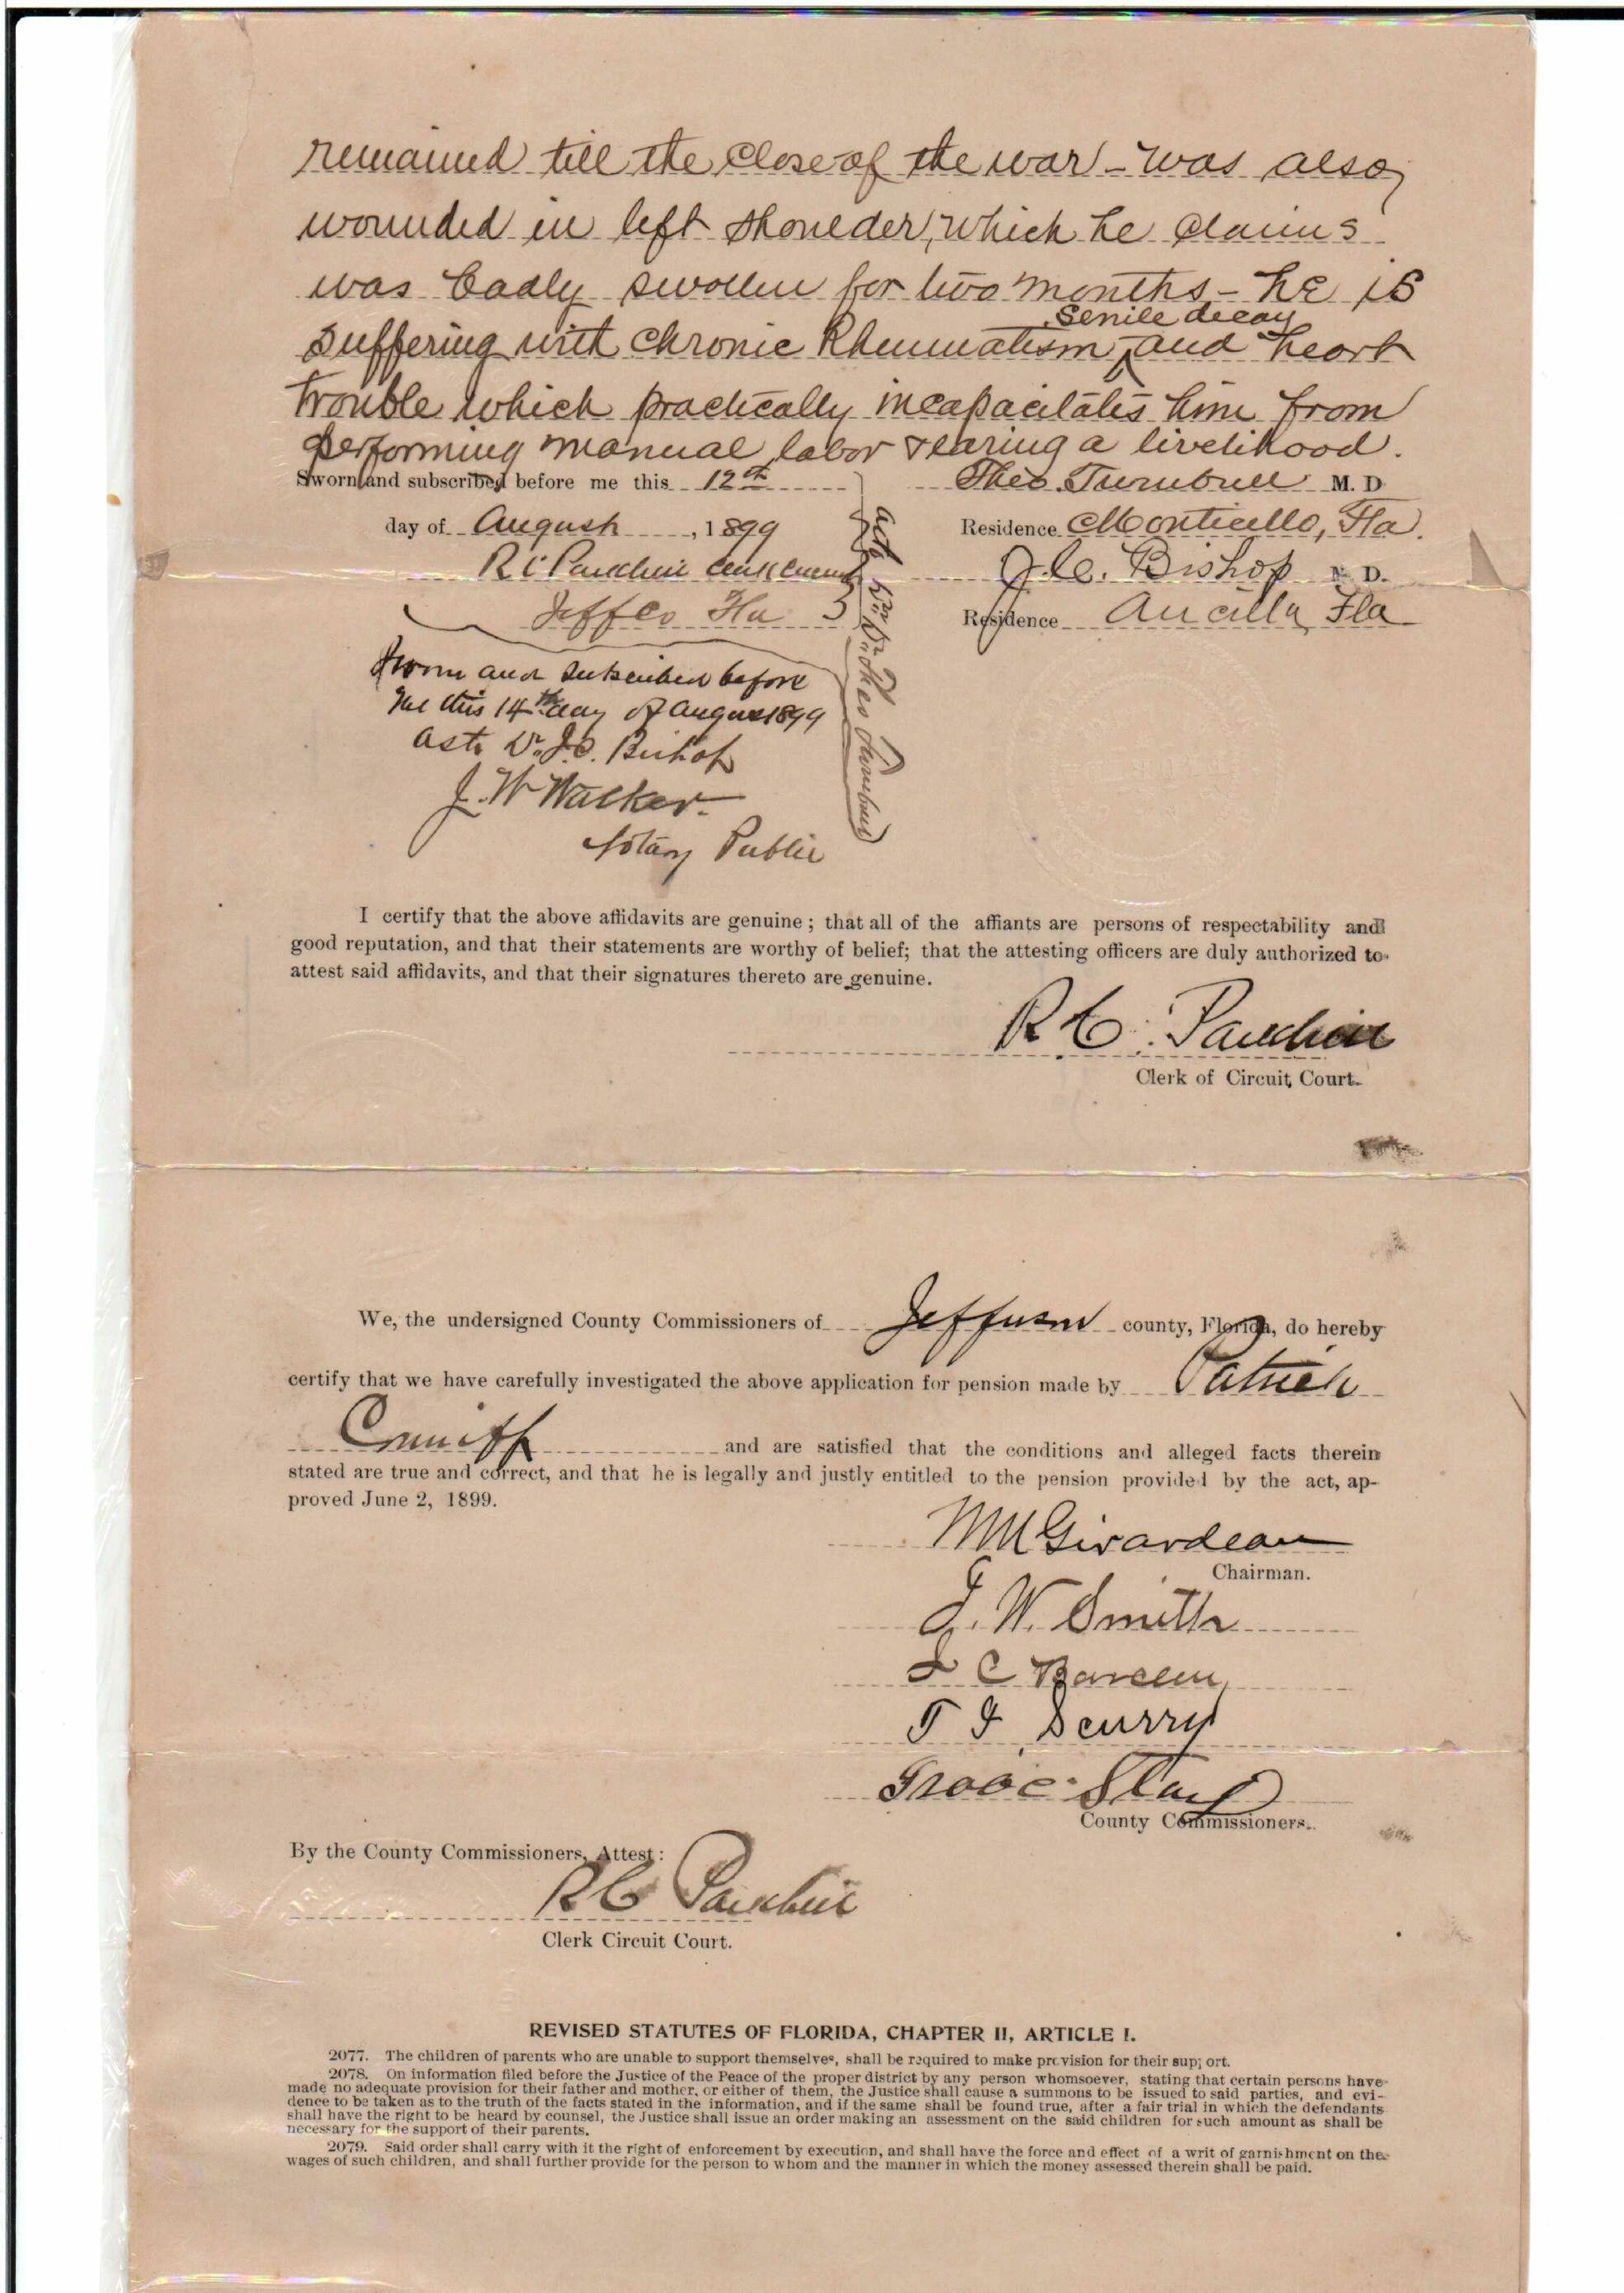 remained till the close of the war - was also
wounded in left shoulder, which he claims
was badly swollen for two months - he is
senile decay
suffering with chronic Rheumatism, ^ and heart
trouble which practically incapacitates him from
performing manual labor & earing a livelihood.
Sworn and subscribed before me this 12th
Theo. Turnbull M. D
day of August, 1899
Residence Monticello, Fla.
R C Parkhill Clerk
J. C. Bishop M. D.
Jeff Co Fla
Residence Aucilla, Fla
as to Dr. Theo Turnbull
Sworn and subscribed before
me this 14th day of August 1899
as to Dr. J. C. Bishop
J. W Walker.
Notary Public
I certify that the above affidavits are genuine ; that all of the affiants are persons of respectability and
good reputation, and that their statements are worthy of belief; that the attesting officers are duly authorized to
attest said affidavits, and that their signatures thereto are genuine.
R. C. Parkhill
Clerk of Circuit Court.
We, the undersigned County Commissioners of Jefferson county, Florida, do hereby
certify that we have carefully investigated the above application for pension made by Patrick
Cunniff and are satisfied that the conditions and alleged facts therein
stated are true and correct, and that he is legally and justly entitled to the pension provided by the act, ap-
proved June 2, 1899.
W M Girardeau
Chairman.
J. W. Smith
C
T J Scurry
County Commissioners.
By the County Commissioners, Attest :
R C Parkhill
Clerk Circuit Court.
REVISED STATUTES OF FLORIDA, CHAPTER II, ARTICLE I.
2077. The children of parents who are unable to support themselves, shall be required to make provision for their support.
2078. On information filed before the Justice of the Peace of the proper district by any person whomsoever, stating that certain persons have
made no adequate provision for their father and mother, or either of them, the Justice shall cause a summons to be issued to said parties, and evi-
dence to be taken as to the truth of the facts stated in the information, and if the same shall be found true, after a fair trial in which the defendants
shall have the right to be heard by counsel, the Justice shall issue an order making an assessment on the said children for such amount as shall be
necessary for the support of their parents.
2079. Said order shall carry with it the right of enforcement by execution, and shall have the force and effect of a writ of garnishment on the
wages of such children, and shall further provide for the person to whom and the manner in which the money assessed therein shall be paid.